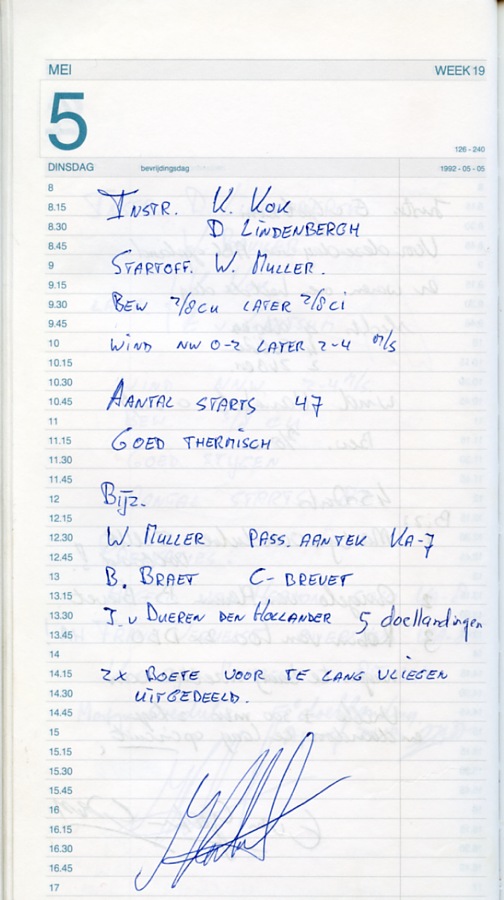 MEI WEEK 19
5
126 - 240
DINSDAG bevrijdingsdag 1992 - 05 - 05
8
8.15 INSTR. K. KOK
8.30 D LINDENBERGH
8.45
9 STARTOFF. W. MULLER.
9.15
9.30 BEW 2/8CU LATER 2/8CI
9.45
10 WIND NW 0-2 LATER 2-4 M/S
10.15
10.30
10.45 AANTAL STARTS 47
11
11.15 GOED THERMISCH
11.30
11.45
12 BIJZ.
12.15
12.30 W. MULLER PASS. AANTEK KA-7
12.45
13 B. BRAET C-BREVET
13.15
13.30 J. v DUEREN DEN HOLLANDER 5 doellandingen
13.45
14
14.15 2X BOETE VOOR TE LANG VLIEGEN
14.30 UITGEDEELD.
14.45
15
15.15
15.30
15.45
16
16.15
16.30
16.45
17